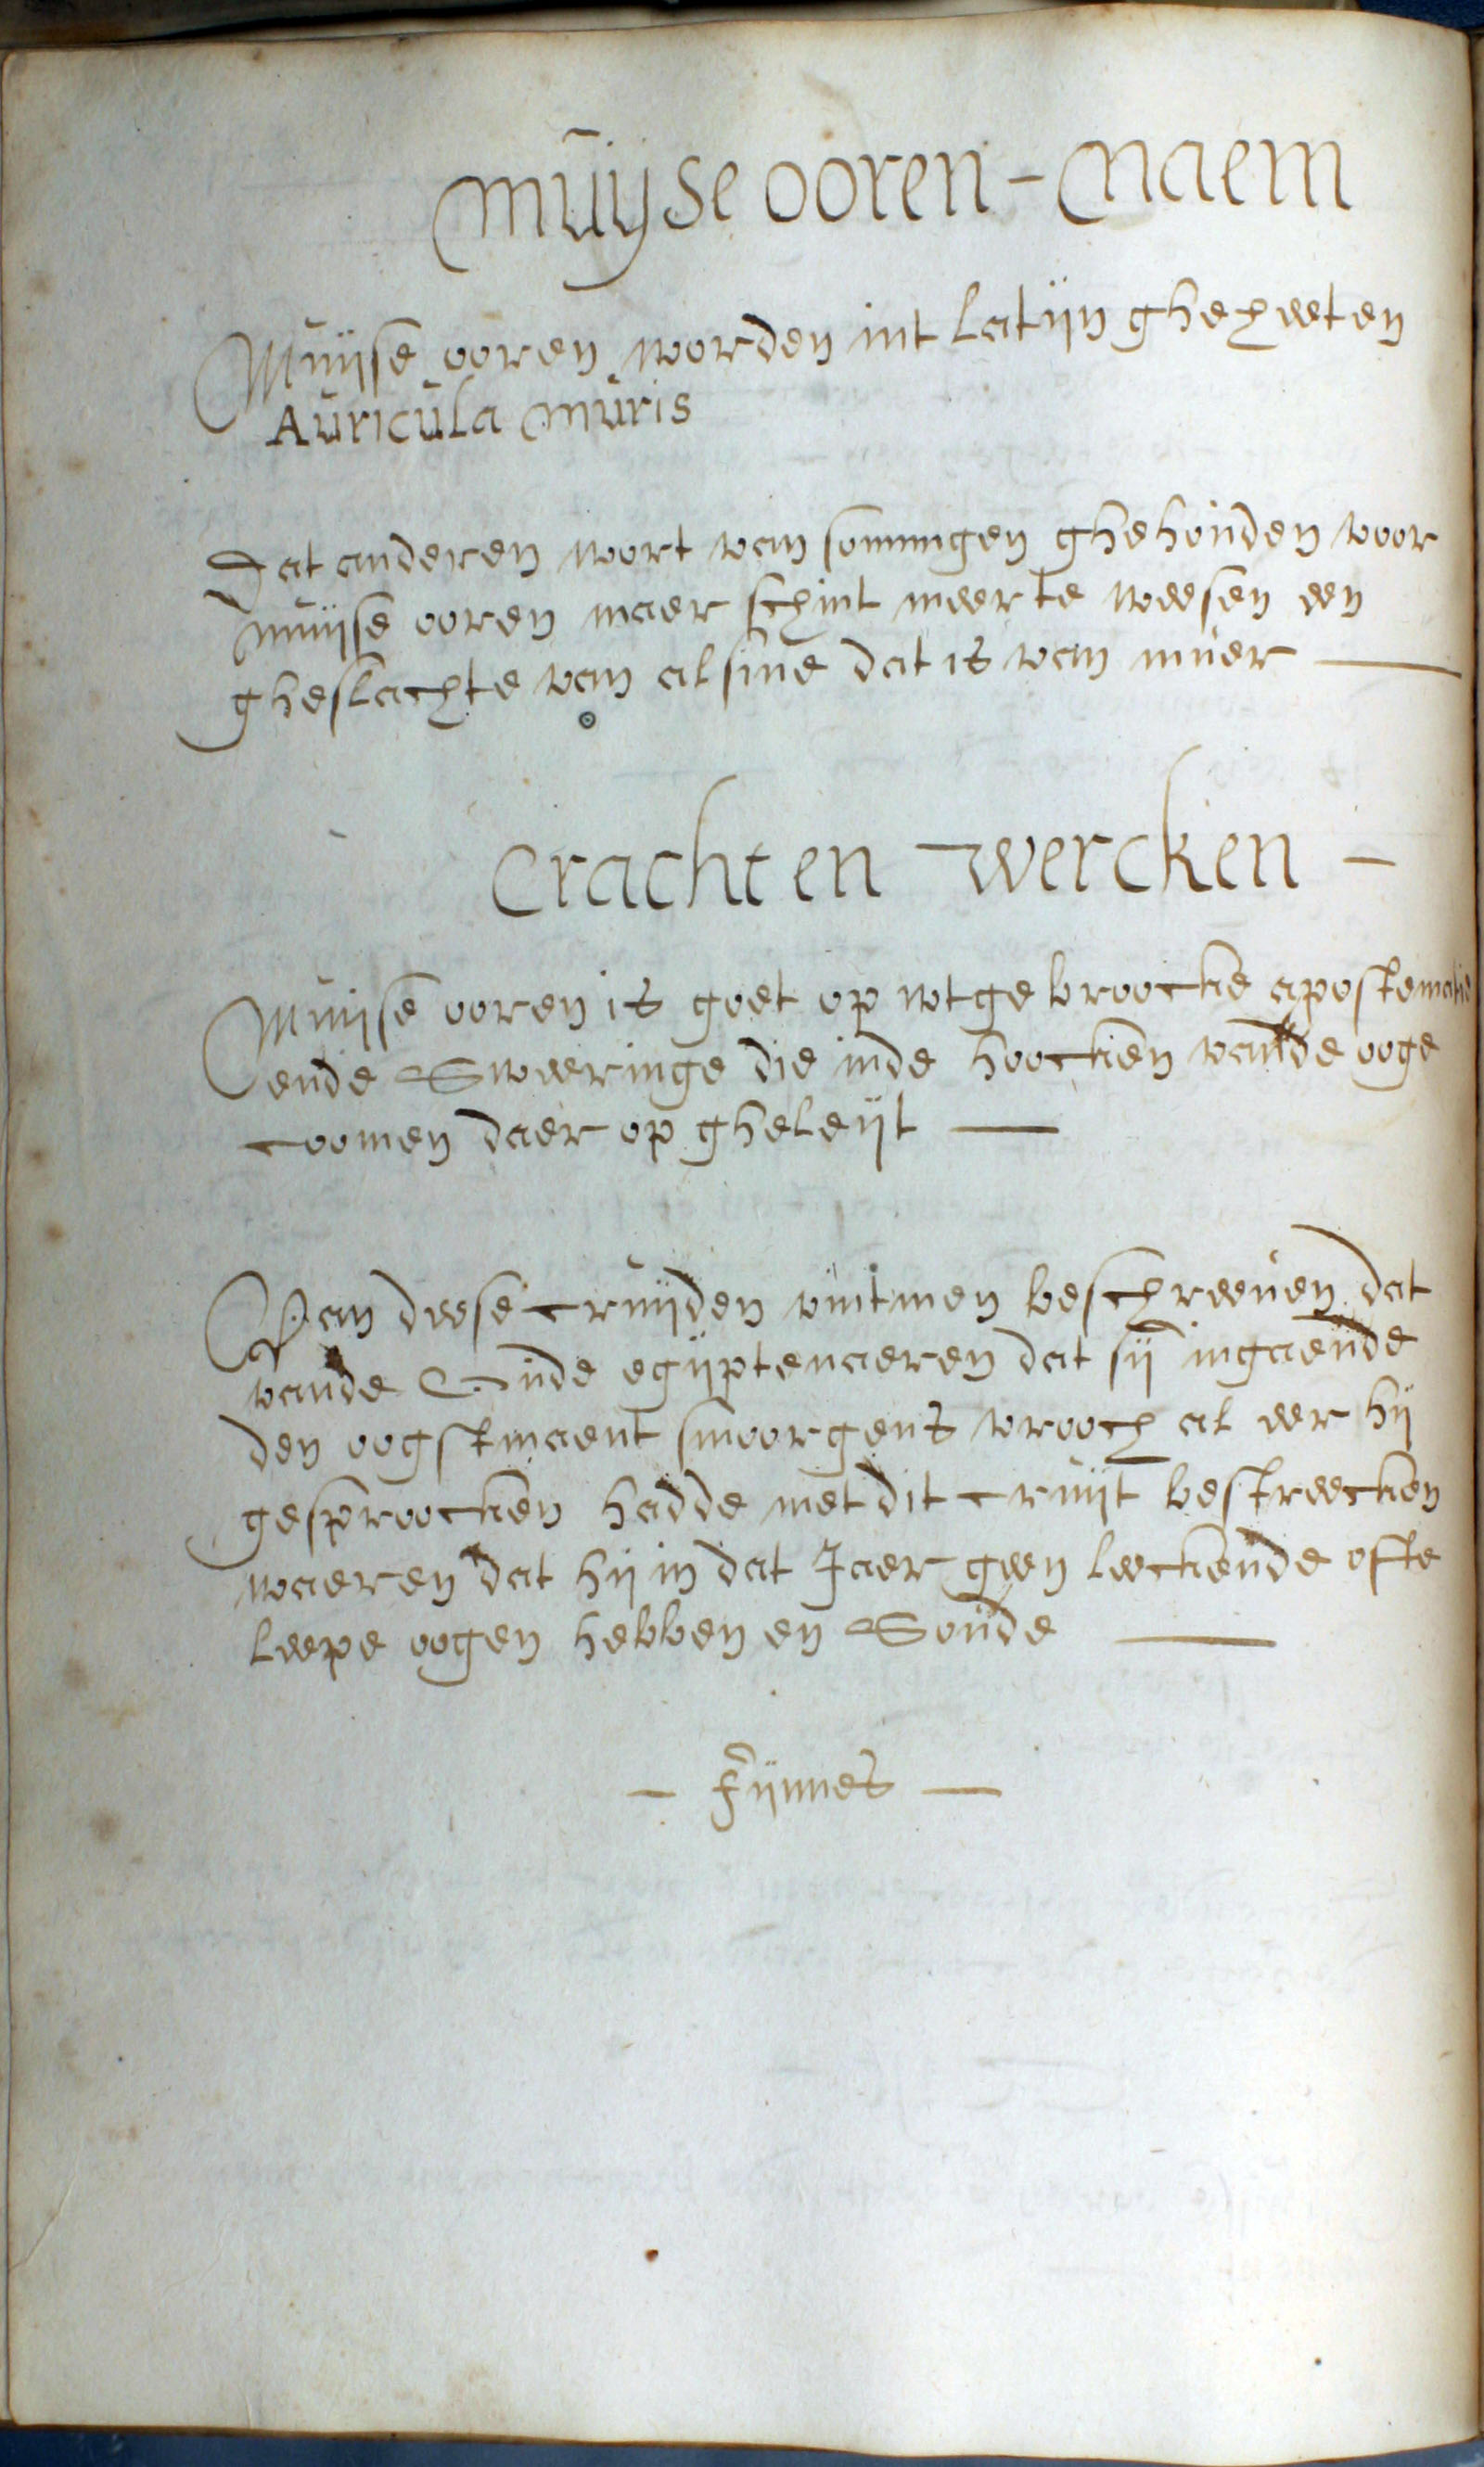 Muijse ooren - Naem
Muijse ooren worden int Latijn ghexeeten
Auricula Muris
Dat anderen wort van sommigen ghehouden voor
muijse ooren maer schint meer te weesen een
gheslachte van alsine dat is van muer —
Crachten wercken -
Muijse ooren is goet op wtgebroocke apostematie
ende Sweeringe die inde hoecken vande ooge
coomen daer op gheleijt —
Van deese cruijden vintmen beschreeven dat
vande oude egijptenaeren dat sij ingaende
den oogstmaent smoorgens vrooch al eer hij
gesproocken hadde met dit cruijt bestreecken
waeren dat hij in dat Jaer geen leckende ofte
leepe oogen hebben en Soude —
- Fijnnes —